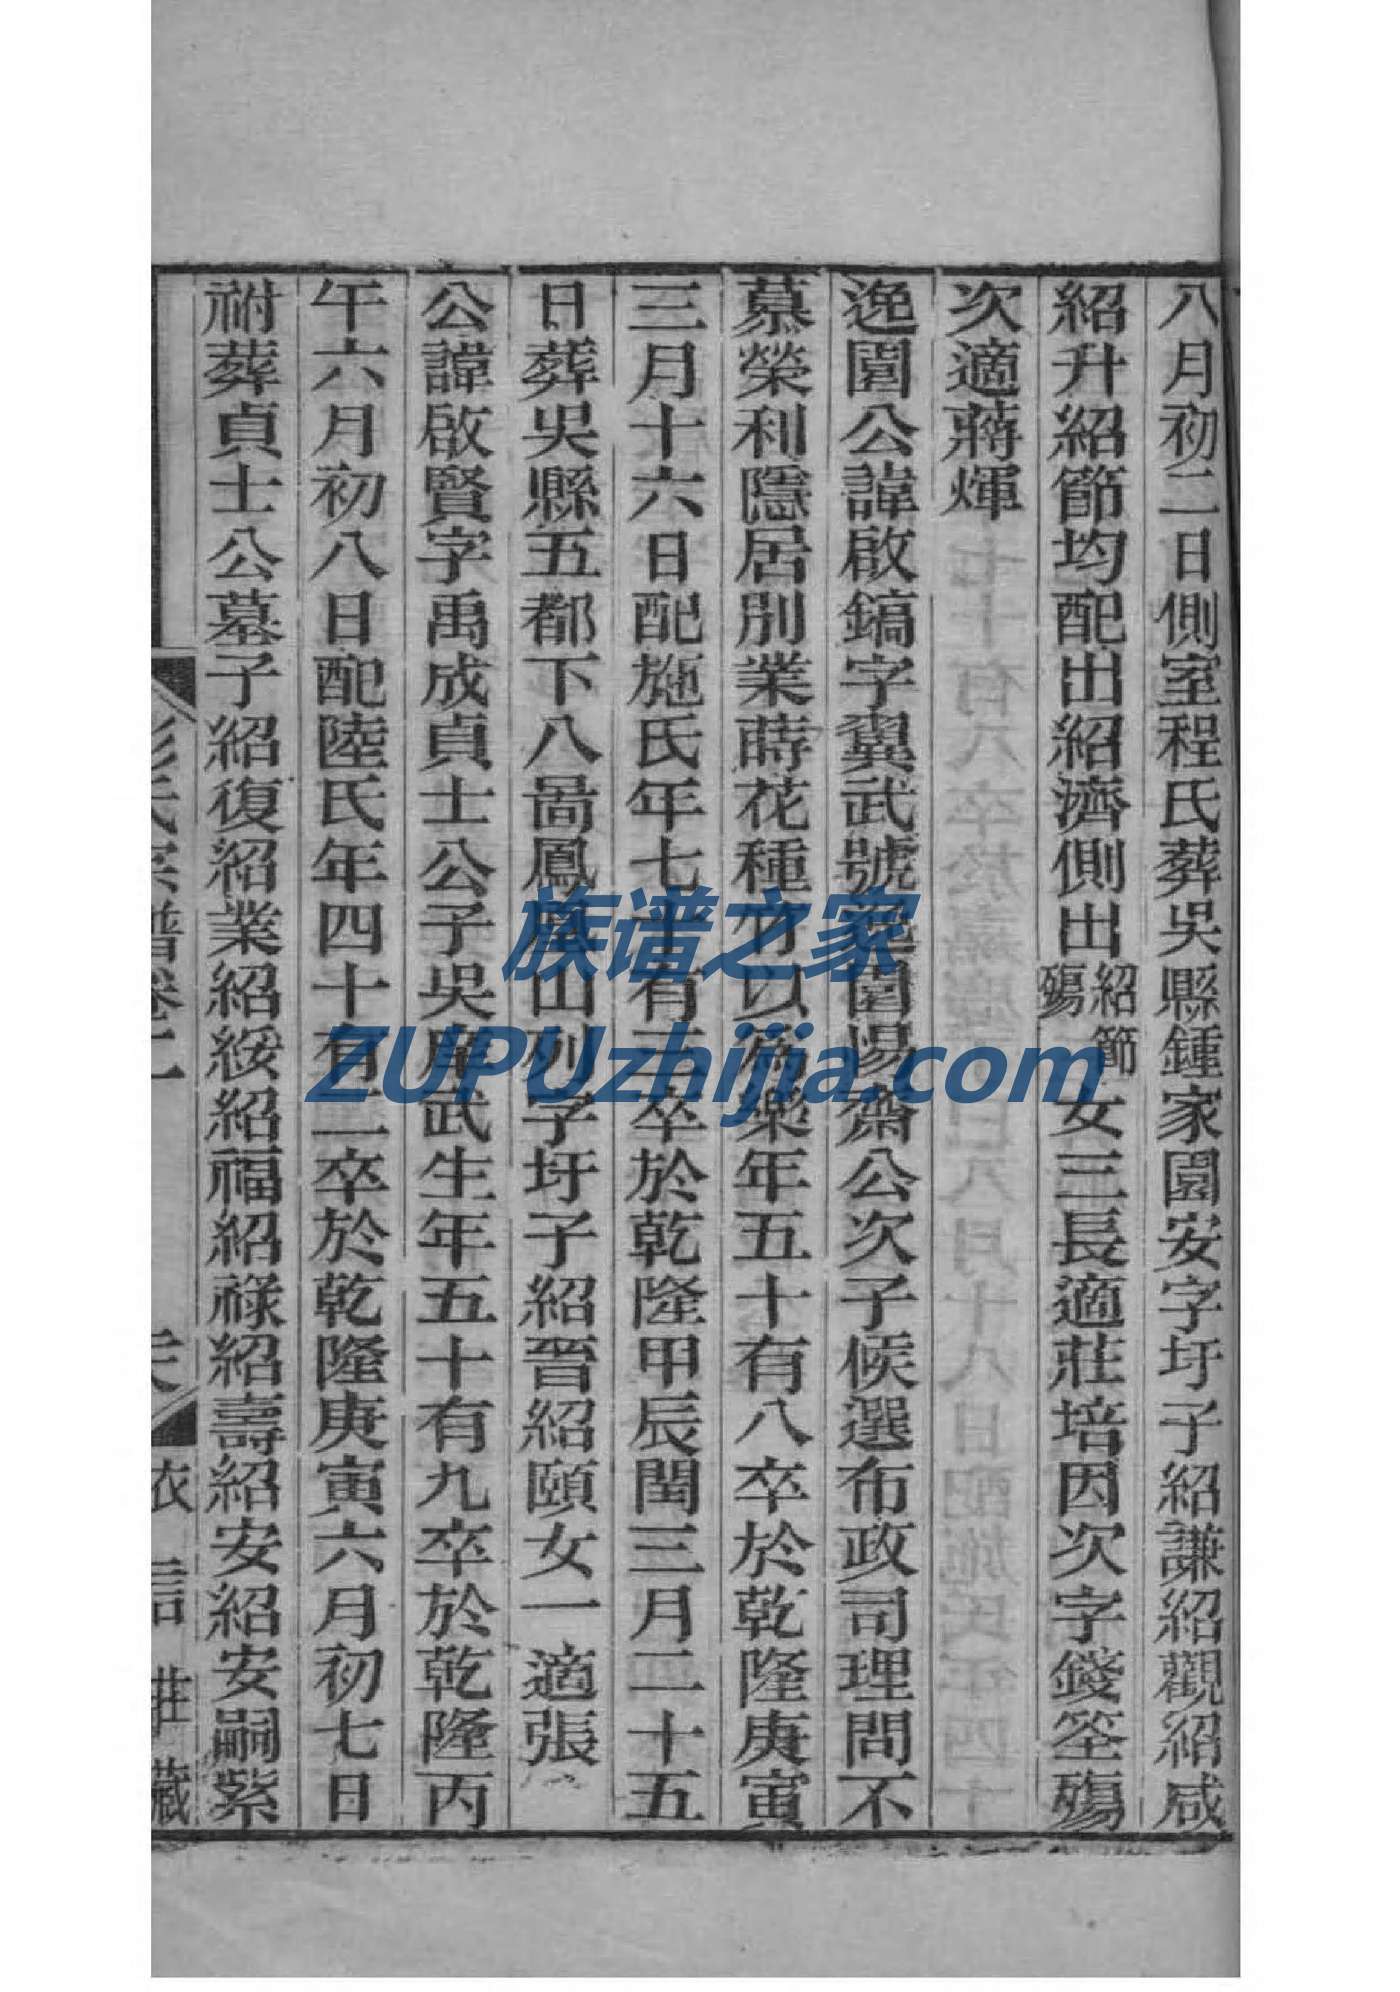 八月初二日側室程氏葬吳縣鍾家園安字圩子紹謙紹觀紹咸
紹升紹節均配出紹濟側出紹節殤女三長適莊培因次字錢筌殤
次適蔣煇
逸園公諱啟鎬字翼武號逸園惕齋公次子候選布政司理問不
慕榮利隱居別業蒔花種竹以為樂年五十有八卒於乾隆庚寅
三月十六日配施氏年七十有三卒於乾隆甲辰閏三月二十五
日葬吳縣五都下八啚鳳凰山列字圩子紹晉紹頤女一適張
公諱啟賢字禹成貞士公子吳庠武生年五十有九卒於乾隆丙
午六月初八日配陸氏年四十有二卒於乾隆庚寅六月初七日
祔葬貞士公墓子紹復紹業紹綏紹福紹祿紹壽紹安紹安嗣紫
彭氏宗譜卷二
衣言莊藏
族谱之家
ZUPUzhijia.com